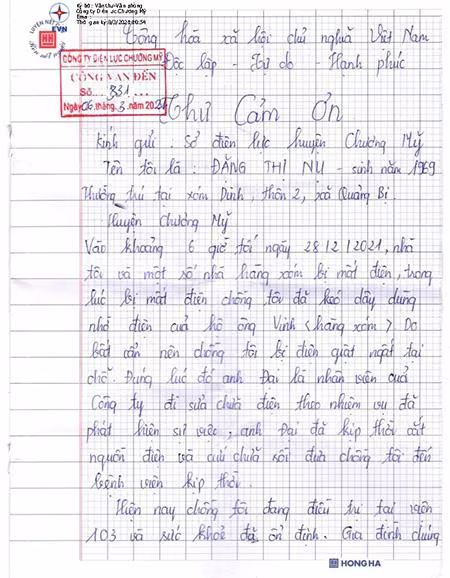 Ký bởi: Văn thư-Văn phòng
Công ty Điện lực Chương Mỹ
Ema
EVN
Cộng hòa xã hội chủ nghĩa Việt Nam
Độc lập - Tự do - Hạnh phúc
CÔNG TY ĐIỆN LỰC CHƯƠNG MỸ
CÔNG VĂN ĐẾN
Số 331
Ngày 06 tháng 3 năm
Thư Cảm Ơn
Kính gửi : Sở điện lực huyện Chương Mỹ
Tên tôi là : ĐẶNG THỊ NỤ - sinh năm 1969
Thường trú tại xóm Dinh, thôn 2, xã Quảng Bị.
Huyện Chương Mỹ
Vào khoảng 6 giờ tối ngày 28/12/2021, nhà
tôi và một số nhà hàng xóm bị mất điện, trong
lúc bị mất điện chồng tôi đã kéo dây dùng
nhờ điện cuả hộ ông Vinh <hàng xóm> Do
bất cẩn nên chồng tôi bị điện giật ngất tại
chỗ. Đúng lúc đó anh Đại là nhân viên cuả
Công ty đi sửa chữa điện theo nhiệm vụ đã
phát hiện sự việc, anh Đại đã kịp thời cắt
nguồn điện và cứu chữa rồi đưa chồng tôi đến
bệnh viện kịp thời.
Hiện nay chồng tôi đang điều trị tại viện
103 và sức khoẻ đã ổn định. Gia đình chúng
HONG HA